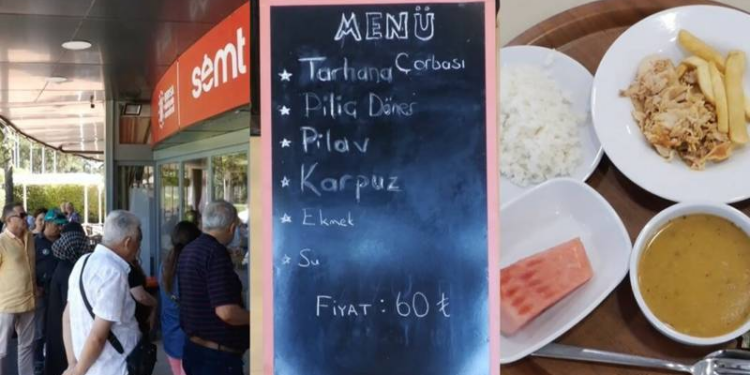 semt
MENÜ
Tarhana Çorbası
Piliç Döner
Pilav
Karpuz
Ekmek
Su
FİYAT : 60 ₺